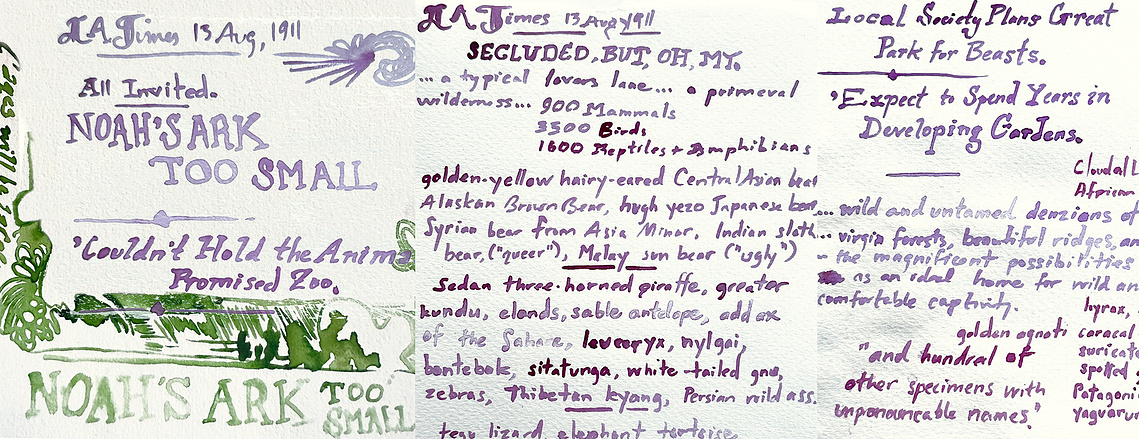 L.A. Times 13 Aug, 1911
All Invited.
NOAH'S ARK
TOO SMALL
'Couldn't Hold the Anima
Promised Zoo.
NOAH'S ARK TOO
SMALL
L.A. Times 13 Aug 1911
SECLUDED, BUT, OH, MY.
... a typical lovers lane... a primeval
wilderness... 900 Mammals
3500 Birds
1600 Reptiles + Amphibians
golden-yellow hairy-eared Central Asian bear
Alaskan Brown Bear, hugh yezo Japanese bear,
Syrian bear from Asia Minor, Indian sloth
bear, ("queer"), Malay sun bear ("ugly")
Sedan three-horned giraffe, greater
kundu, elands, sable antelope, addax
of the Sahare, leucoryx, nylgai,
bontebok, sitatunga, white-tailed gnu,
zebras, Thibetan kyang, Persian wild ass.
tegu lizard, elephant tortoise,
Local Society Plans Great
Park for Beasts.
'Expect to Spend Years in
Developing Gardens.
... wild and untamed denzions of
... virgin forests, beautiful ridges, an
- the magnificent possibilities
as an ideal home for wild an
comfortable captivity.
golden agouti
"and hundral of
other specimens with
unpronouncable names."
Cloudal L
African
hyrax,
caracal
suricate
spotted
Patagoni
yaguarun